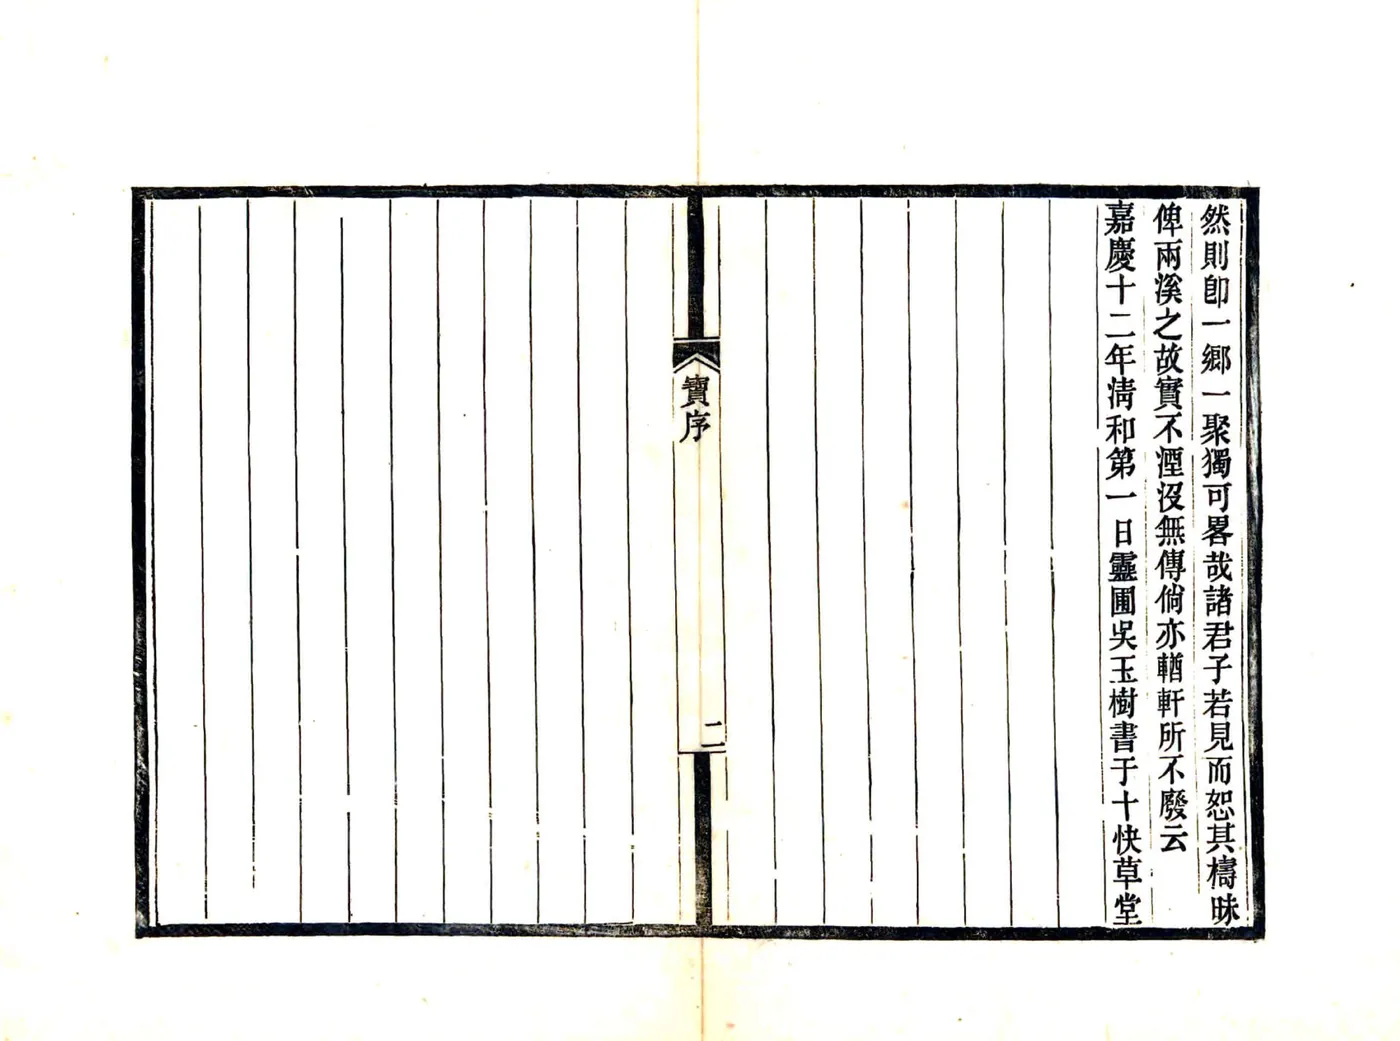 然則卽一鄉一聚獨可畧哉諸君子若見而恕其檮昧
俾兩溪之故實不湮沒無傳倘亦輶軒所不廢云
嘉慶十二年淸和第一日靈圃吳玉樹書于十快草堂
寶序
二